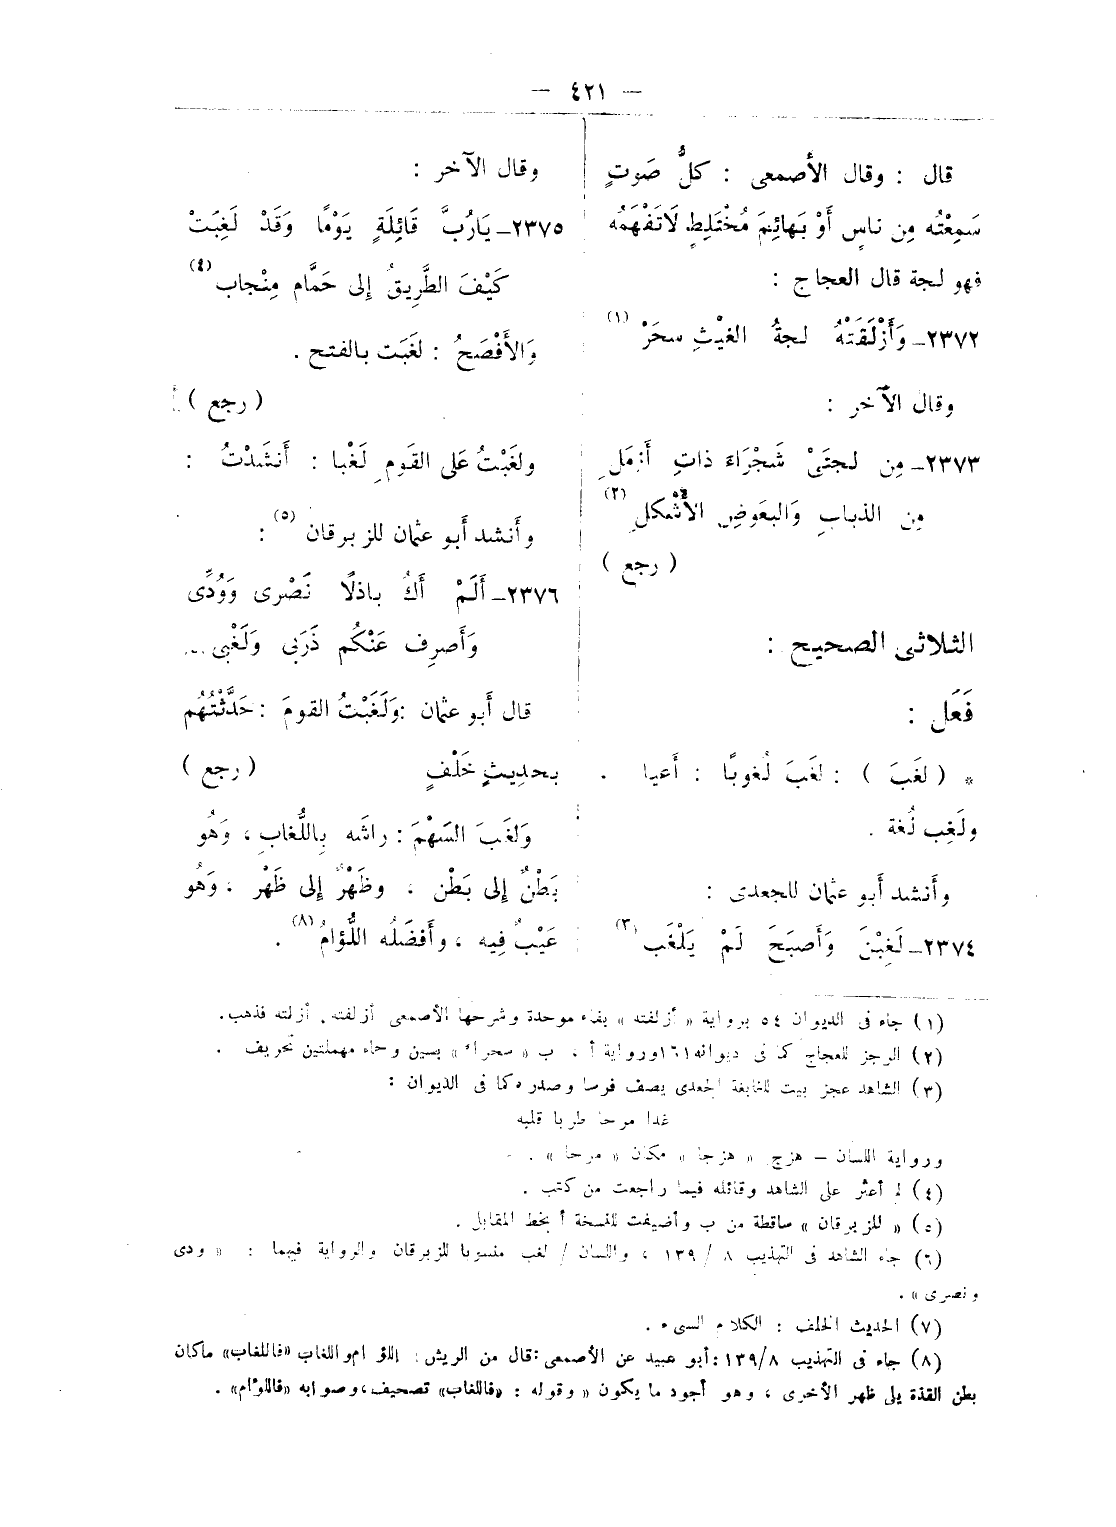 — ٤٢١ —
قال : وقال الأصمعى : كلُّ صَوتٍ
سَمِعْتُه مِن ناسٍ أَوْ بَهائِمَ مُخْتَلِطٍ لَاتَفْهَمُه
فهو لجة قال العجاج :
٢٣٧٢ــ وَأَزْلَقَتْهُ لجةُ الغيْثِ سحَرْ (١)
وقال الآخر :
٢٣٧٣ــ مِن لجتَىْ شَجْرَاءَ ذاتِ أَزمَلِ
مِن الذبابِ وَالبعَوضِ الأشْكلِ (٢)
( رجع )
الثلاثى الصحيح :
فَعَل :
* ( لغَبَ ) : لغَبَ لُغوبًا : أَعيا .
ولَغِب لُغة .
وأَنشد أَبو عثمان للجعدى :
٢٣٧٤ــ لَغِبْنَ وَأَصبَحَ لَمْ يَلْغَب (٣)
وقال الآخر :
٢٣٧٥ــ يَارُبَّ قَائِلَةٍ يَوْمًا وَقَدْ لَغِبَتْ
كَيْفَ الطَّرِيقُ إلى حَمَّام مِنْجاب (٤)
وَالأَفْصَحُ : لغَبَت بالفتح .
( رجع )
ولغَبْتُ عَلى القَوم لَغْبا : أَنشَدْتُ :
وأَنشد أَبو عثمان للزبرقان (٥) :
٢٣٧٦ــ أَلَمْ أَكُ باذلًا نَصْرى وَوُدِّى
وَأَصرِف عَنْكُم ذَرَبى وَلَغْبِى ...
قال أَبو عثمان : وَلَغَبْتُ القومَ : حَدَّثْتُهُم
بحديثٍ خَلْفٍ ( رجع )
وَلغَبَ السَهْمَ : راشَه بِاللُّغابِ ، وَهُو
بَطْنٌ إلى بَطْن ، وظَهْرٌ إلى ظَهْر ، وَهُو
عَيْبٌ فِيه ، وأَفضَلُه اللُّؤامُ (٨) .
(١) جاء فى الديوان ٥٤ برواية « أزلفته » بفاء موحدة وشرحها الأصمعى أزلفته . أزلته فذهب .
(٢) الرجز للعجاج كما فى ديوانه ١٦١ ورواية أ ، ب « سحراء » بسين وحاء مهملتين تحريف .
(٣) الشاهد عجز بيت للنابغة الجعدى يصف فرسا وصدره كما فى الديوان :
غدا مرحا طربا قلبه
ورواية اللسان – هزج « هزجا » مكان « مرحا » .
(٤) لم أعثر على الشاهد وقائله فيما راجعت من كتب .
(٥) « للزبرقان » ساقطة من ب وأضيفت للنسخة أ بخط المقابل .
(٦) جاء الشاهد فى التهذيب ٨ / ١٣٩ ، واللسان / لغب منسوبا للزبرقان والرواية فيهما : « ودى
ونصرى » .
(٧) الحديث الخلف : الكلام السىء .
(٨) جاء فى التهذيب ١٣٩/٨ : أبو عبيد عن الأصمعى : قال من الريش : اللؤام واللغاب «فاللغاب» ماكان
بطن القذة يلى ظهر الأخرى ، وهو أجود ما يكون « وقوله : «فاللغاب» تصحيف، وصوابه «فاللؤام» .